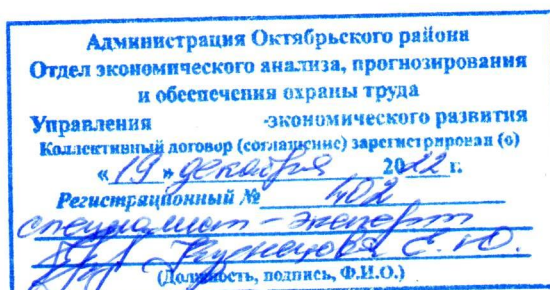 Администрация Октябрьского района
Отдел экономического анализа, прогнозирования
и обеспечения охраны труда
Управления -экономического развития
Коллективный договор (соглашение) зарегистрирован (о)
« 19 » декабря 2022 г.
Регистрационный № 402
специалист - эксперт
Кузнецова Е.Ю.
(Должность, подпись, Ф.И.О.)